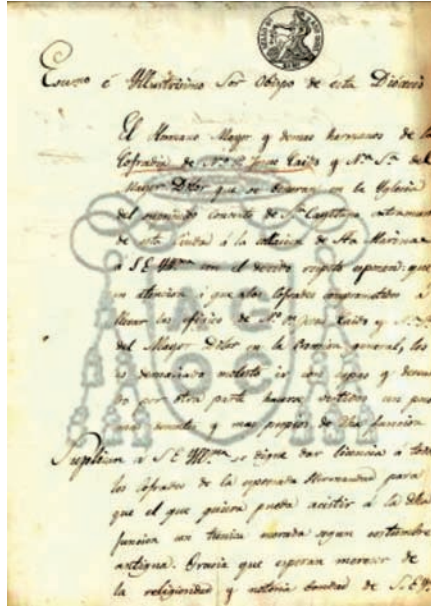 Exmo é Yllustrisimo Sor Obispo de esta Diócesis
El Hermano Mayor y demas hermanos de la
Cofradia de Ntro. P. Jesus Caido y Ntra. Sra. del
Mayor Dolor que se veneran en la Yglesia
del estinguido convento de Sn. Cayetano extramuros
de esta Ciudad á la collacion de Sta Marina
á S.E.Yllma. con el devido respeto esponen: que
en atencion á que los Cofrades comprometidos á
llevar las efigies de Ntro. P. Jesus Caido y Ntra. Sra.
del Mayor Dolor en la Comision general, les
es demasiado molesto ir con capas y
do por otra parte hacerse vestidos un poco
mas y mas propios de dha funcion
Suplican á S.E.Yllma. se digne dar licencia á todos
los Cofrades de la espresada Hermandad para
que el que quiera pueda acistir á la dha
funcion con tunica morada segun costumbre
antigua. Gracia que esperan merecer de
la religiosidad y notoria bondad de S.E.Y.
AGOC